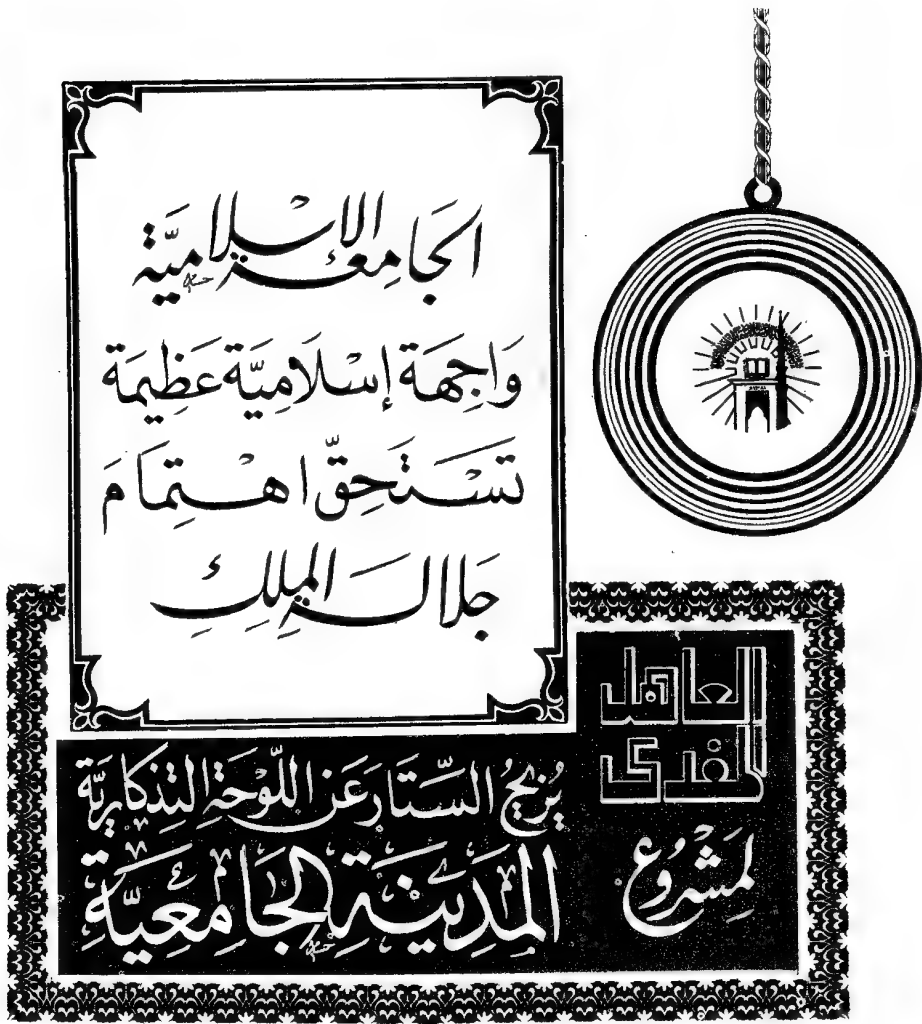 الجَامِعَة الإسْلاميَّة
وَاجِهَة إسْلَامِيَّة عَظِيمَة
تَسْتَحِقّ اهْتِمَامَ
جَلَالَة المَلِكِ
العاهل
المفدى
يُزيحُ السِّتَارَ عَن اللَّوْحَةِ التِذكَارِيَّة
لمَشْرُوع
المَدِينَةِ الجَامِعِيَّةِ